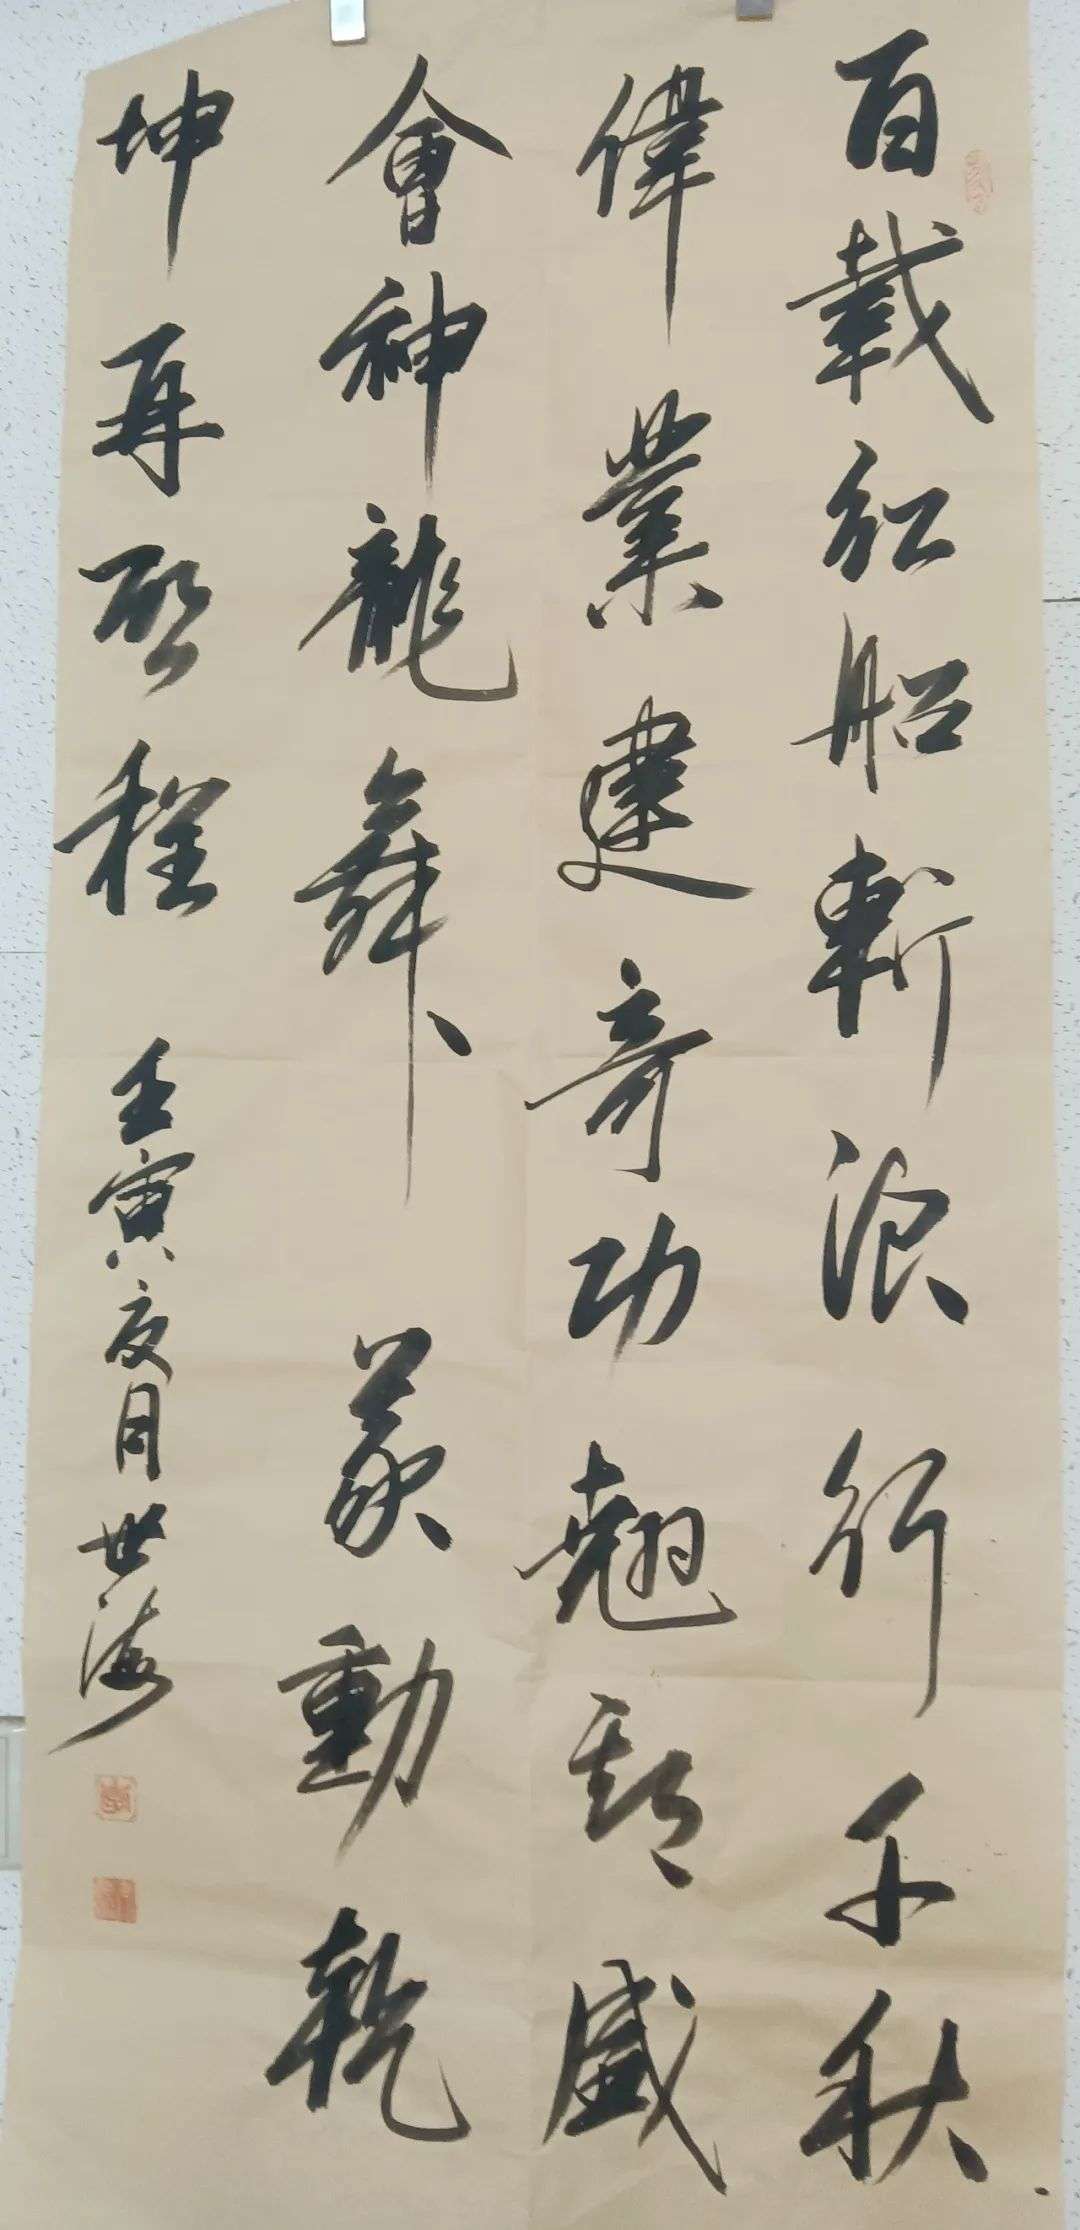 百載紅船斬浪行千秋
偉業建奇功翹首盛
會神龍舞羨動乾
坤再啟程
壬寅夜月世海